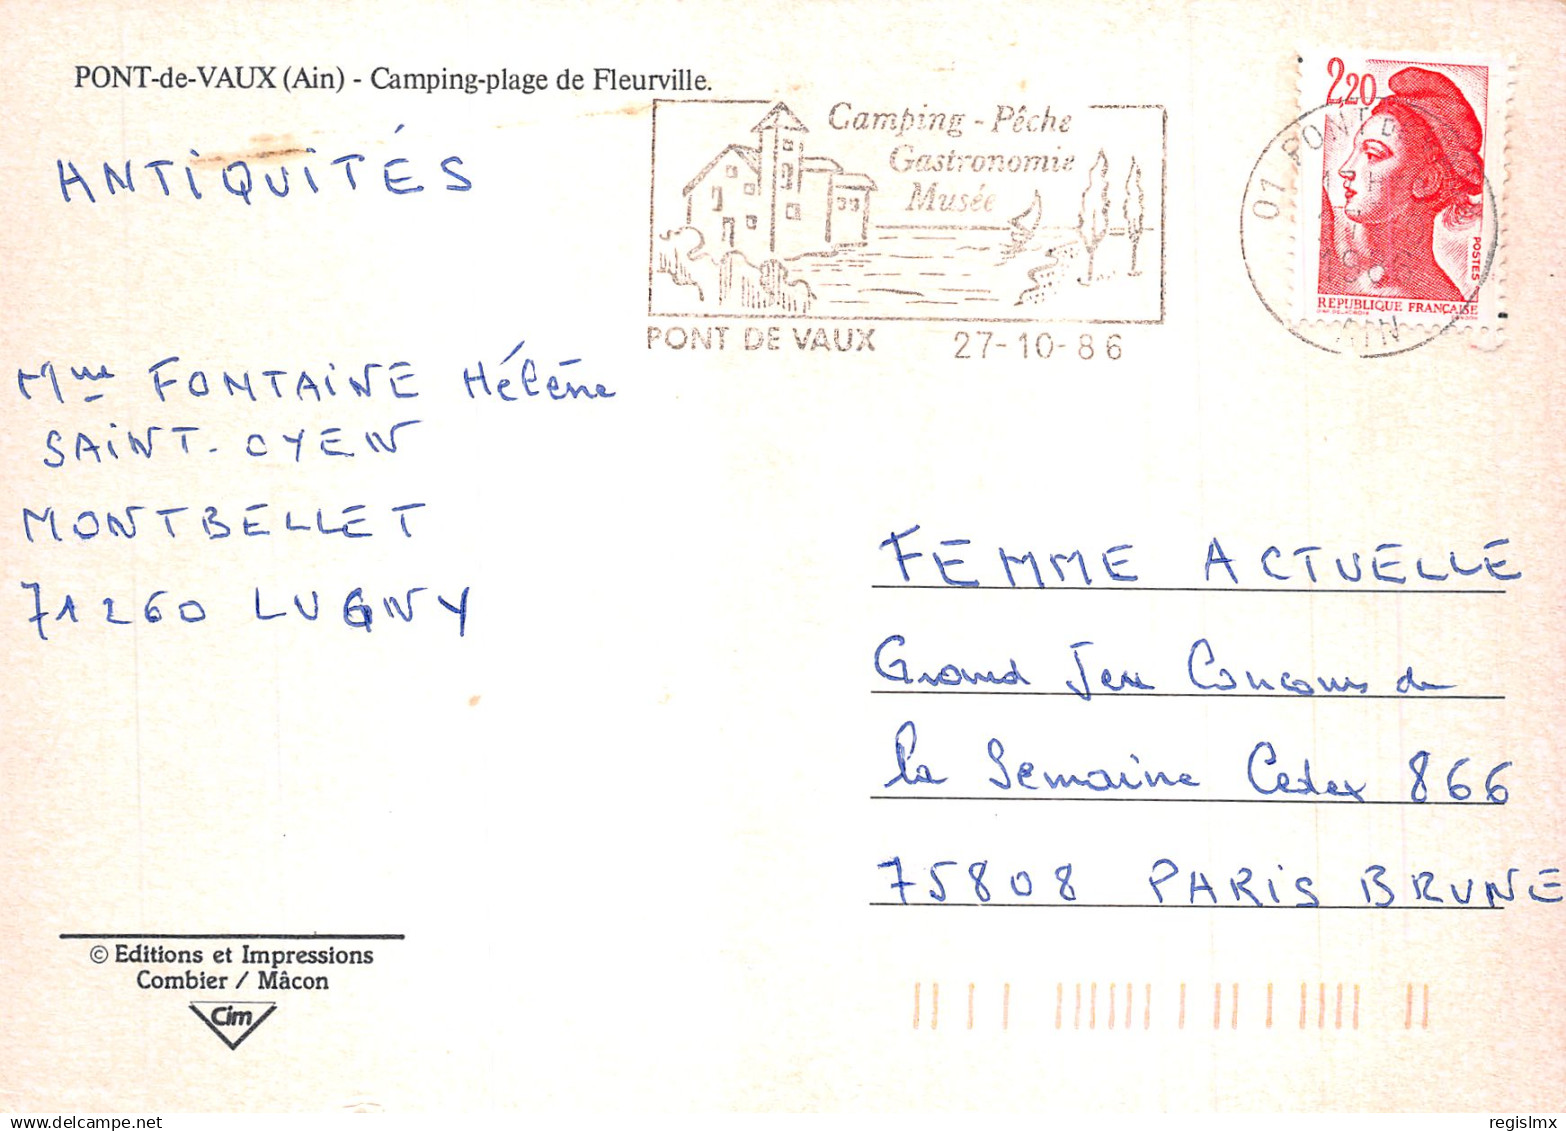 PONT-de-VAUX (Ain) - Camping-plage de Fleurville.
ANTIQUITÉS
Camping - Pêche
Gastronomie
Musée
PONT DE VAUX 27-10-86
01 PONT DE
AIN
2,20
POSTES
REPUBLIQUE FRANÇAISE
Mme FONTAINE Hélène
SAINT-CYEN
MONTBELLET
71260 LUGNY
FEMME ACTUELLE
Grand Jeu Concours de
la Semaine Cedex 866
75808 PARIS BRUNE
© Editions et Impressions
Combier / Mâcon
Cim
regislmx